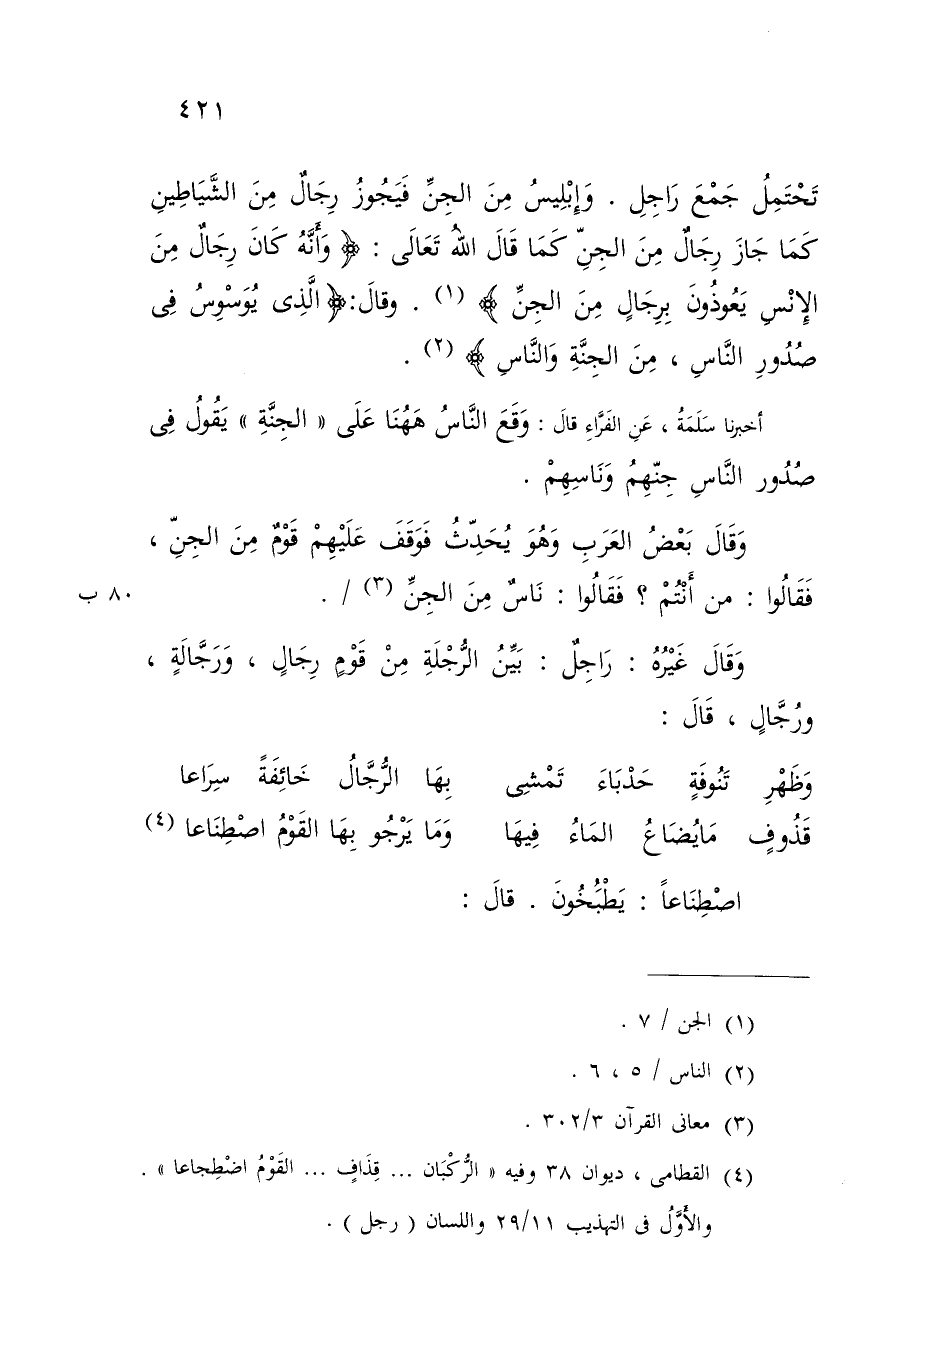 ٤٢١
تَحْتَمِلُ جَمْعَ رَاجِلِ . وَإِبْلِيسُ مِنَ الجِنِّ فَيَجُوزُ رِجَالٌ مِنَ الشَّيَاطِينِ
كَمَا جَازَ رِجَالٌ مِنَ الجِنِّ كَمَا قَالَ اللهُ تَعَالَى : ﴿ وَأَنَّهُ كَانَ رِجَالٌ مِنَ
الإِنْسِ يَعُوذُونَ بِرِجَالٍ مِنَ الجِنِّ ﴾ (١) . وقالَ: ﴿ الَّذِى يُوَسْوِسُ فِى
صُدُورِ النَّاسِ ، مِنَ الجِنَّةِ وَالنَّاسِ ﴾ (٢) .
أخبرنا سَلَمَةُ ، عَنِ الفَرَّاءِ قالَ : وَقَعَ النَّاسُ هَهُنَا عَلَى « الجِنَّةِ » يَقُولُ فِى
صُدُور النَّاسِ جِنِّهِمُ وَنَاسِهِمْ .
وَقَالَ بَعْضُ العَرَبِ وَهُوَ يُحَدِّثُ فَوَقَفَ عَلَيْهِمْ قَوْمٌ مِنَ الجِنِّ ،
فَقَالُوا : من أَنْتُمْ ؟ فَقَالُوا : نَاسٌ مِنَ الجِنِّ (٣) / . ٨٠ ب
وَقَالَ غَيْرُهُ : رَاجِلٌ : بَيِّنُ الرُّجْلَةِ مِنْ قَوْمٍ رِجَالٍ ، وَرَجَّالَةٍ ،
ورُجَّالٍ ، قَالَ :
وَظَهْرِ تَنُوفَةٍ حَدْبَاءَ تَمْشِى بِهَا الرُّجَّالُ خَائِفَةً سِرَاعا
قَذُوفٍ مَايُضَاعُ المَاءُ فِيهَا وَمَا يَرْجُو بِهَا القَوْمُ اصْطِنَاعا (٤)
اصْطِنَاعاً : يَطْبُخُونَ . قالَ :
(١) الجن / ٧ .
(٢) الناس / ٥ ، ٦ .
(٣) معانى القرآن ٣٠٢/٣ .
(٤) القطامى ، ديوان ٣٨ وفيه « الرُّكْبَان ... قِذَافٍ ... القَوْمُ اضْطِجاعا » .
والأَوَّلُ فى التهذيب ٢٩/١١ واللسان ( رجل ) .